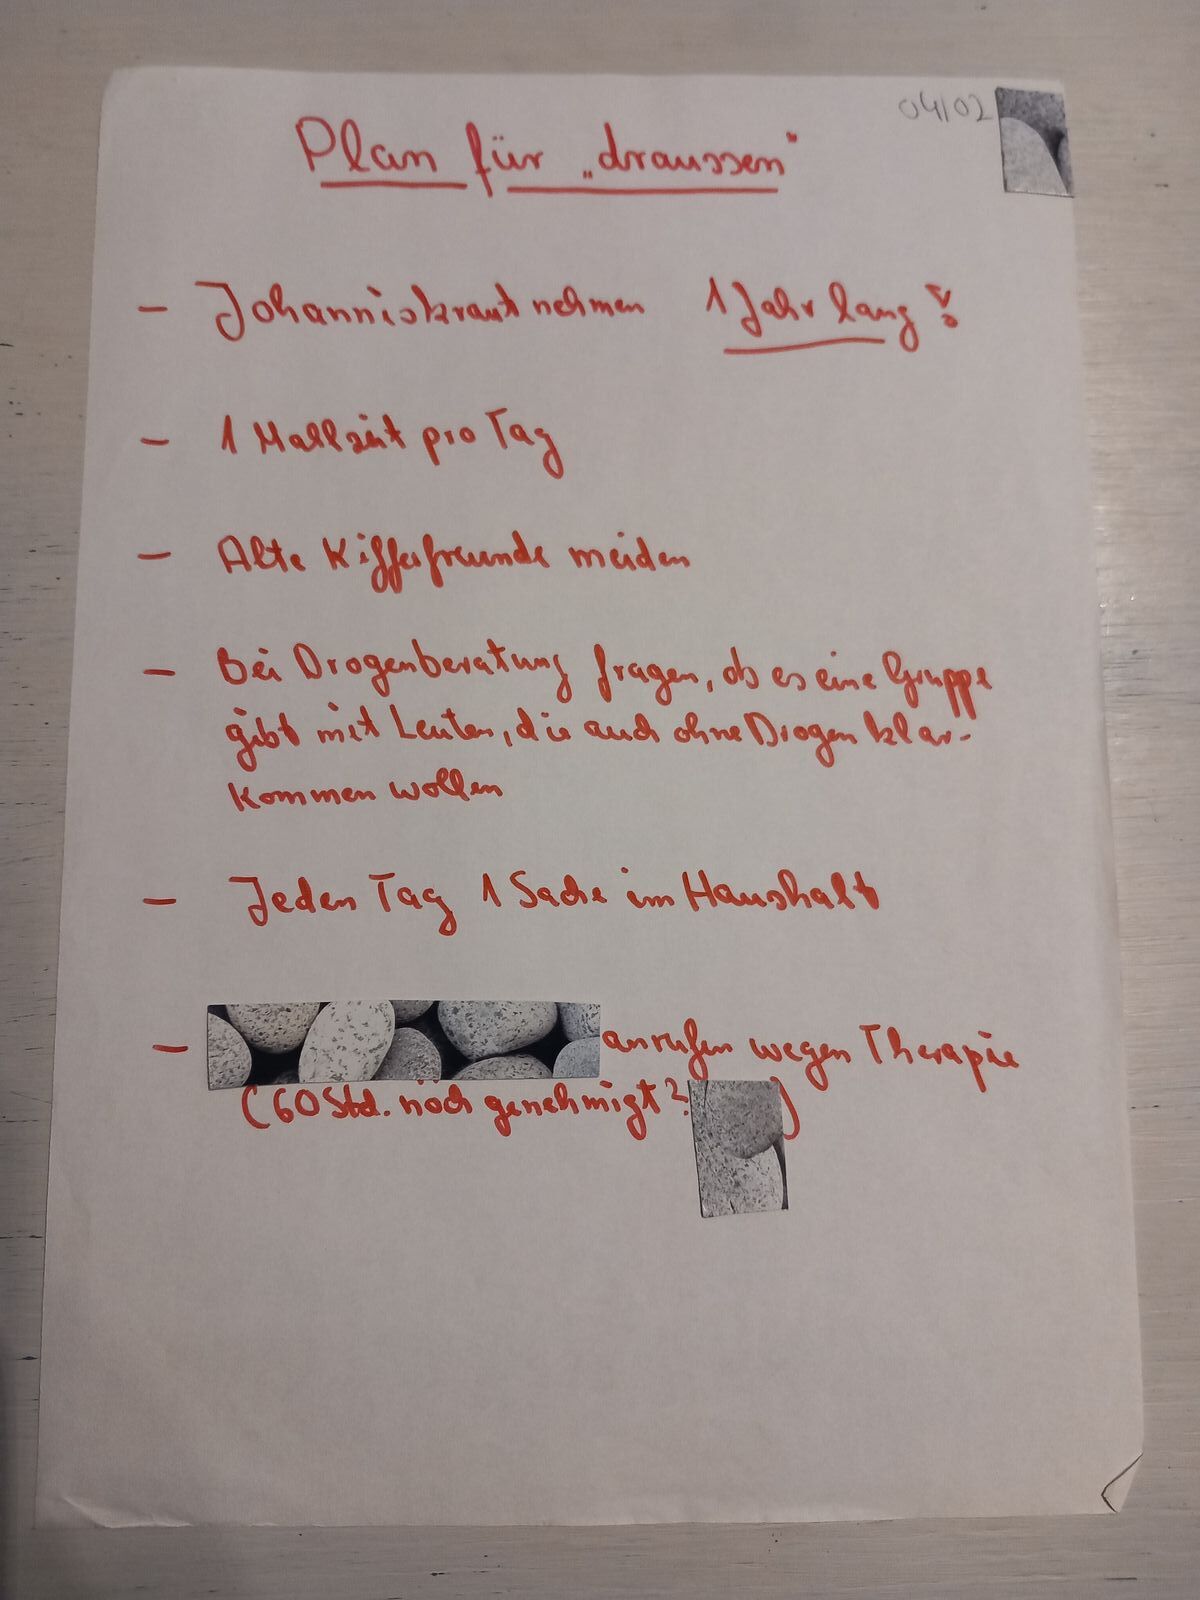 04/02
Plan für „draussen"
- Johanniskraut nehmen 1 Jahr lang!
- 1 Mahlzeit pro Tag
- Alte Kifferfreunde meiden
- Bei Drogenberatung fragen, ob es eine Gruppe
gibt mit Leuten, die auch ohne Drogen klar-
kommen wollen
- Jeden Tag 1 Sache im Haushalt
- anrufen wegen Therapie
(60 Std. noch genehmigt? )